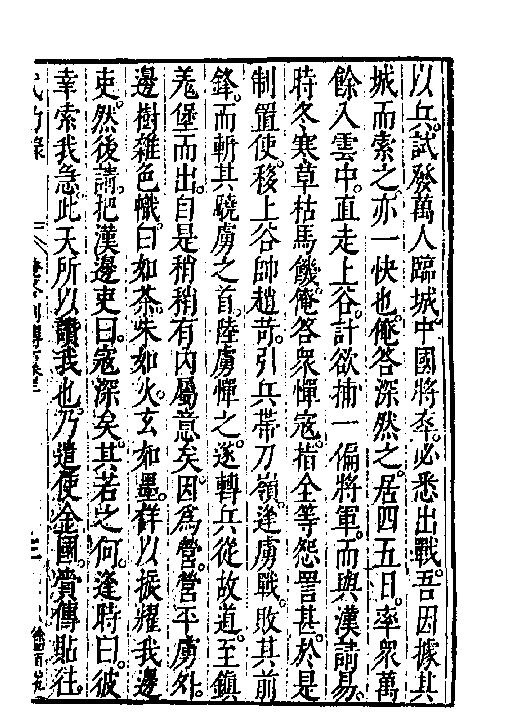 以兵。試發萬人臨城。中國將率。必悉出戰。吾因據其
城而索之。亦一快也。俺答深然之。居四五日。率衆萬
餘入雲中。直走上谷。計欲捕一偏將軍。而與漢請易。
時冬寒草枯馬饑。俺答衆憚寇。揞全等怨詈甚。於是
制置使。移上谷帥趙苛。引兵帶刀嶺。逢虜戰。敗其前
鋒。而斬其驍虜之首。陸虜憚之。遂轉兵從故道。至鎮
羌堡而出。自是稍稍有内屬意矣。因爲營。營平虜外。
邊樹雜色幟。曰如荼。朱如火。玄如墨。群以振耀我邊
吏。然後請。把漢邊吏曰。寇深矣。其若之何。逢時曰。彼
幸索我急。此天所以贊我也。乃遣使金國。賞傳貼往。
武功錄